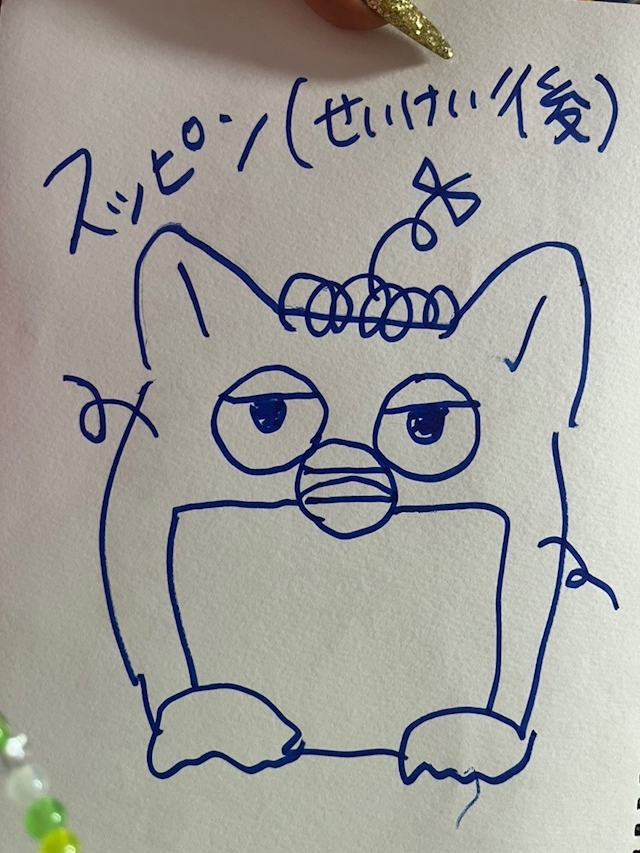 スッピン(せいけい後)